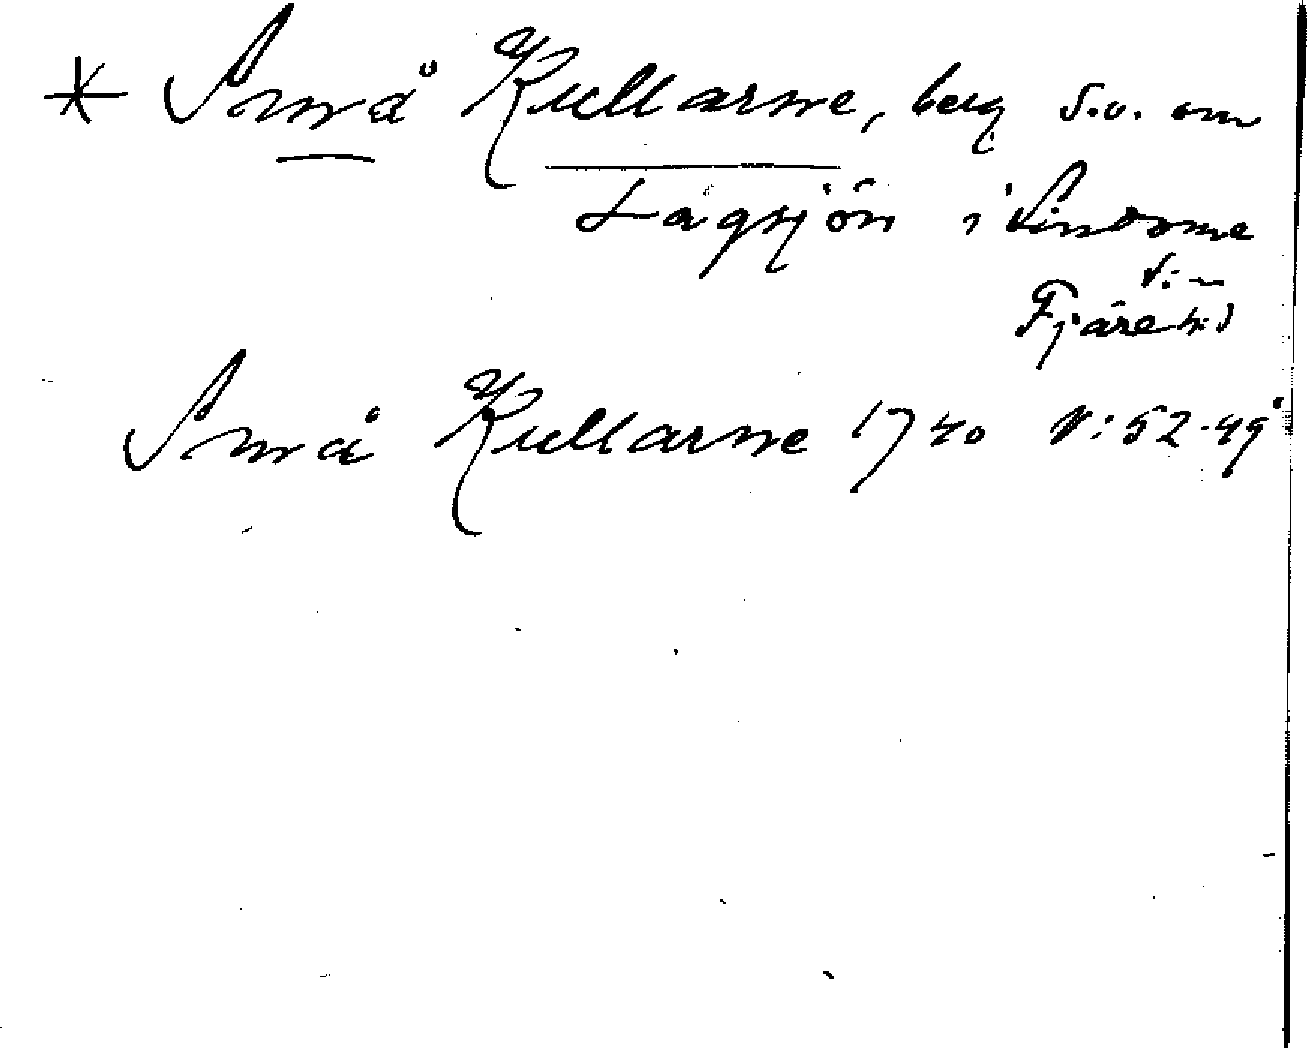 * Små Kullarne, berg s.v. om
Lågsjön i Lindome
s:n
Fjäre hd
Små Kullarne 1740 N:52-49